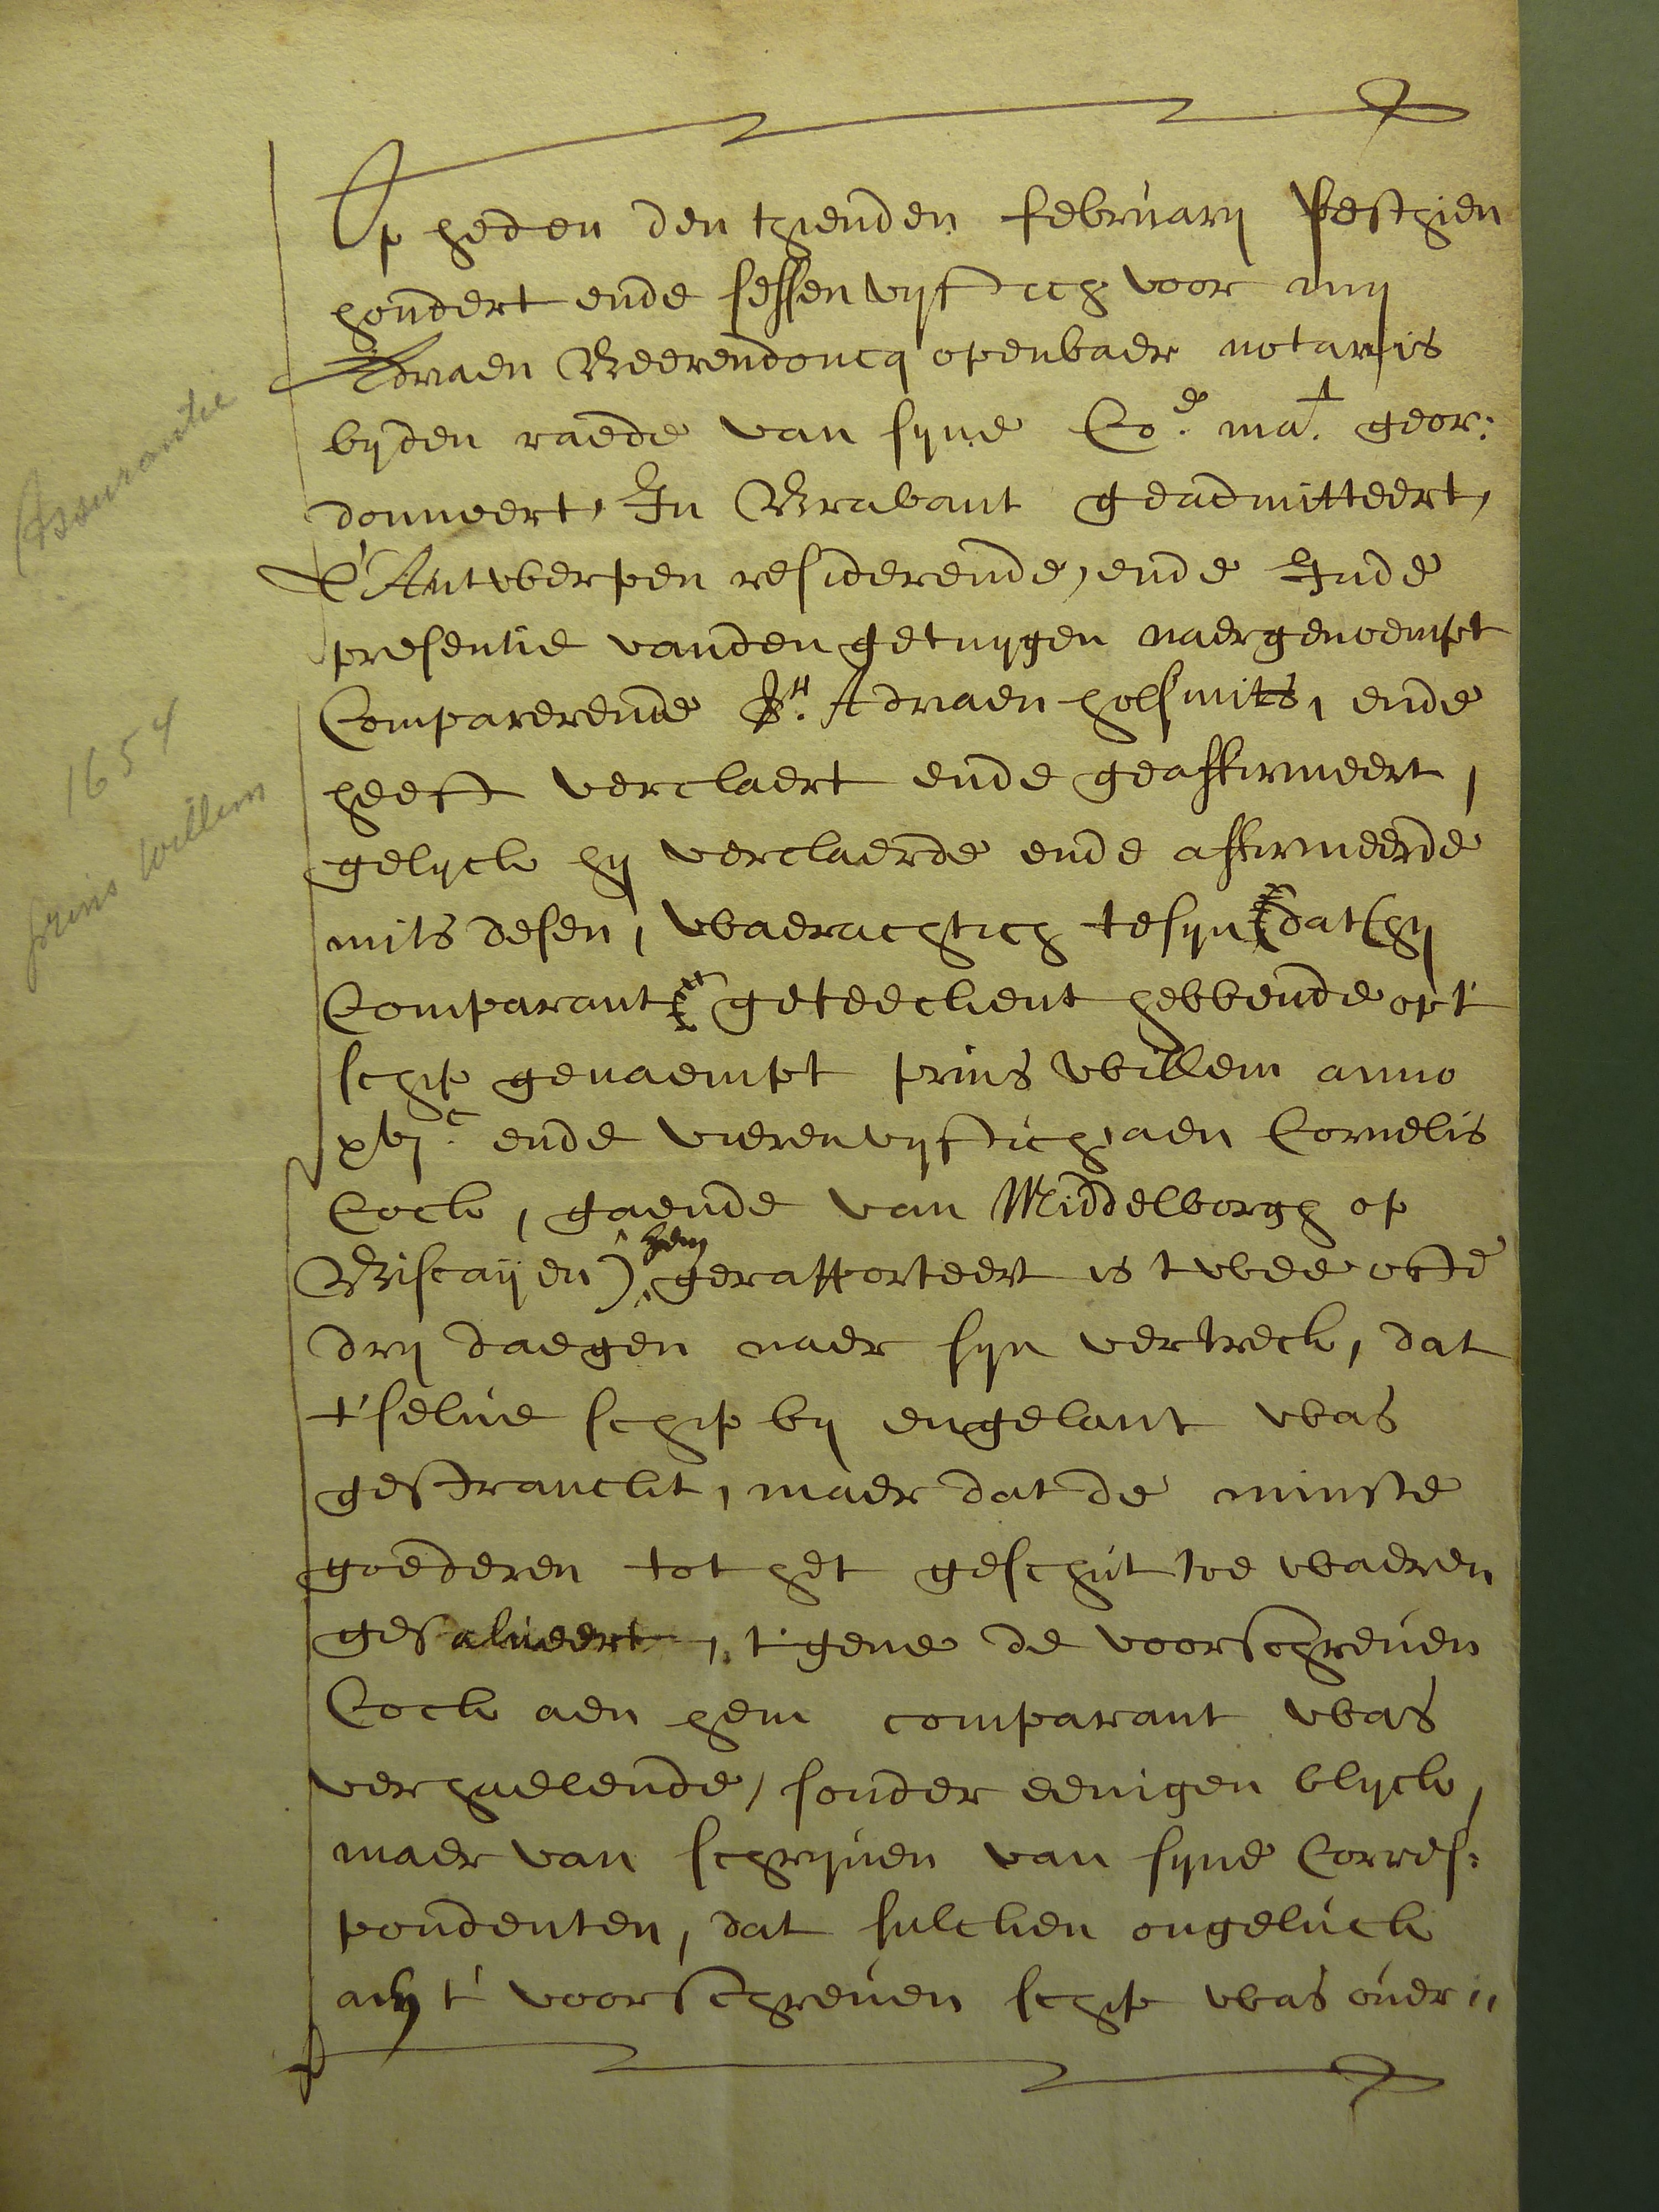 Op heden den thienden februarij sesthien
hondert ende sessenvyftich voor mij
Adriaen Beerendoncq openbaer notaris
byden raede van syne Co.e ma.t geor:
donneert, In Brabant geadmitteert,
t'Antwerpen residerende, ende Inde
presentie vanden getuygen naergenoempt
Comparerende Sr. Adriaen holsmits, ende
heeft verclaert ende geaffirmeert,
gelyck hy verclaerde ende affirmeerde
mits desen, waerachtich tesyn dat (hy
Comparant geteeckent hebbende opt
schip genaempt prins Willem anno
xvj.c ende vierenvyftich, aen Cornelis
Cock, gaende van Middelborgh op
Biscayen) hem gerapporteert is twee ofte
dry daegen naer syn vertreck, dat
t'selve schip by engelant was
gestranckt, maer dat de minste
goederen tot het geschut toe waeren
gesalveert, t'gene de voorschreven
Cock aen hem comparant was
verhaelende, sonder eenigen blyck,
maer van schryven van syne Corres:
pondenten, dat sulcken ongeluck
aen t' voorschreven schip was over::
Assurantie
1654
prins Willem